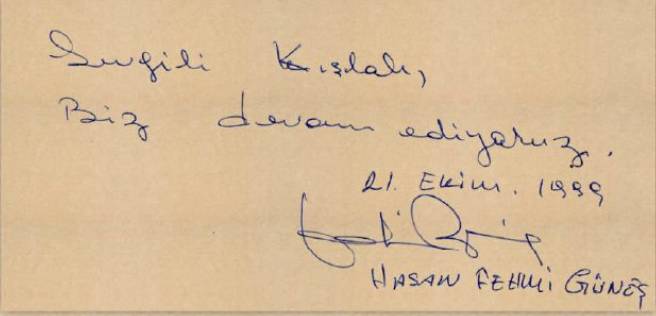 Sevgili Kışlalı,
Biz devam ediyoruz.
21. EKİM. 1999
HASAN FEHMİ GÜNEŞ